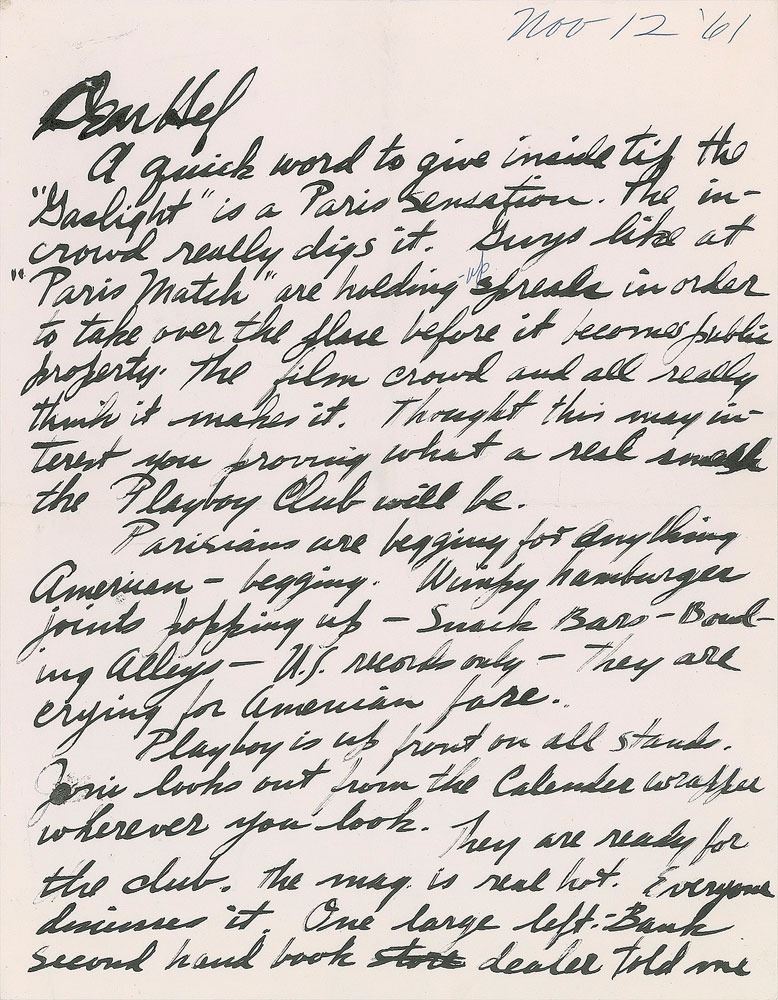 Nov 12 '61
Dear Hef
A quick word to give inside tip the
"Gaslight" is a Paris sensation. The in-
crowd really digs it. Guys like at
"Paris Match" are holding-up spreads in order
to take over the place before it becomes public
property. The film crowd and all really
think it makes it. Thought this may in-
terest you proving what a real smash
the Playboy Club will be.
Parisians are begging for anything
American - begging. Wimpy hamburger
joints popping up - Snack Bars - Bowl-
ing Alleys - U.S. records only - They are
crying for American fare..
Playboy is up front on all stands.
Joni looks out from the Calender wrapper
wherever you look. They are ready for
the club. The mag. is real hot. Everyone
discusses it. One large left-Bank
second hand book store dealer told me